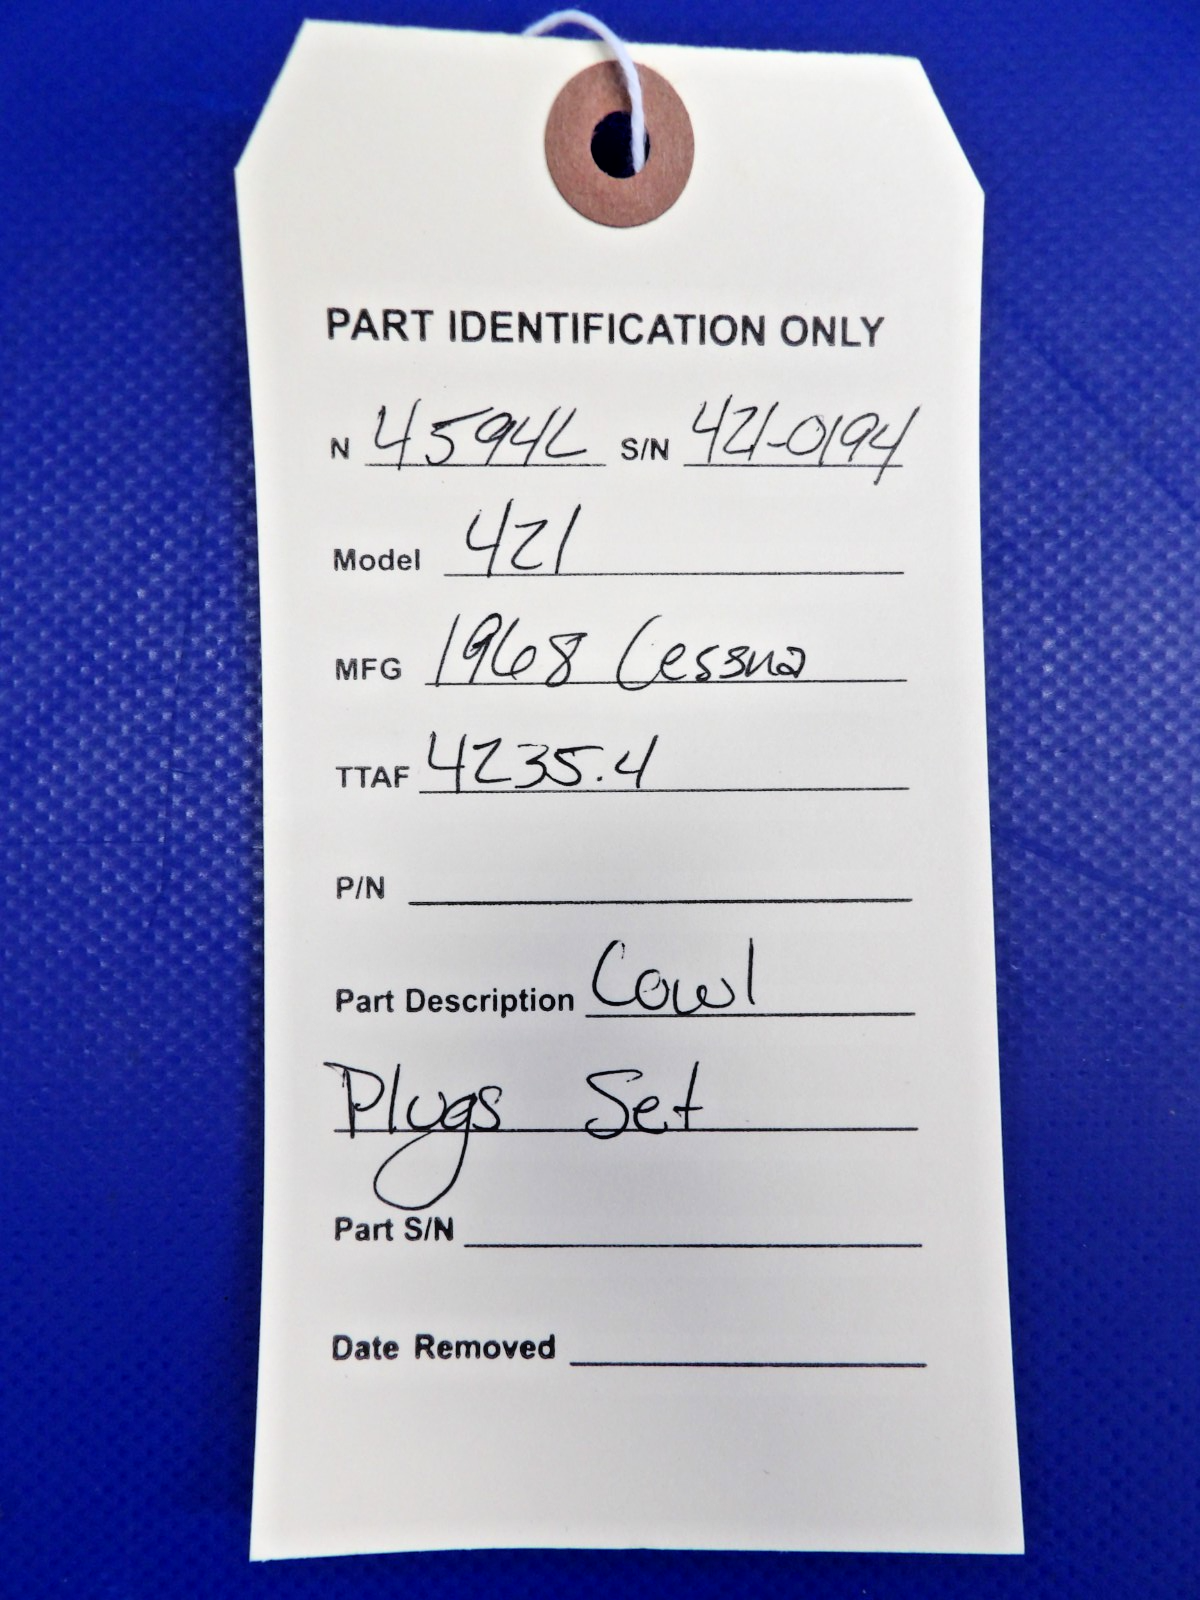 PART IDENTIFICATION ONLY
N 4594L S/N 421-0194
Model 421
MFG 1968 Cessna
TTAF 4235.4
P/N
Part Description Cowl
Plugs Set
Part S/N
Date Removed